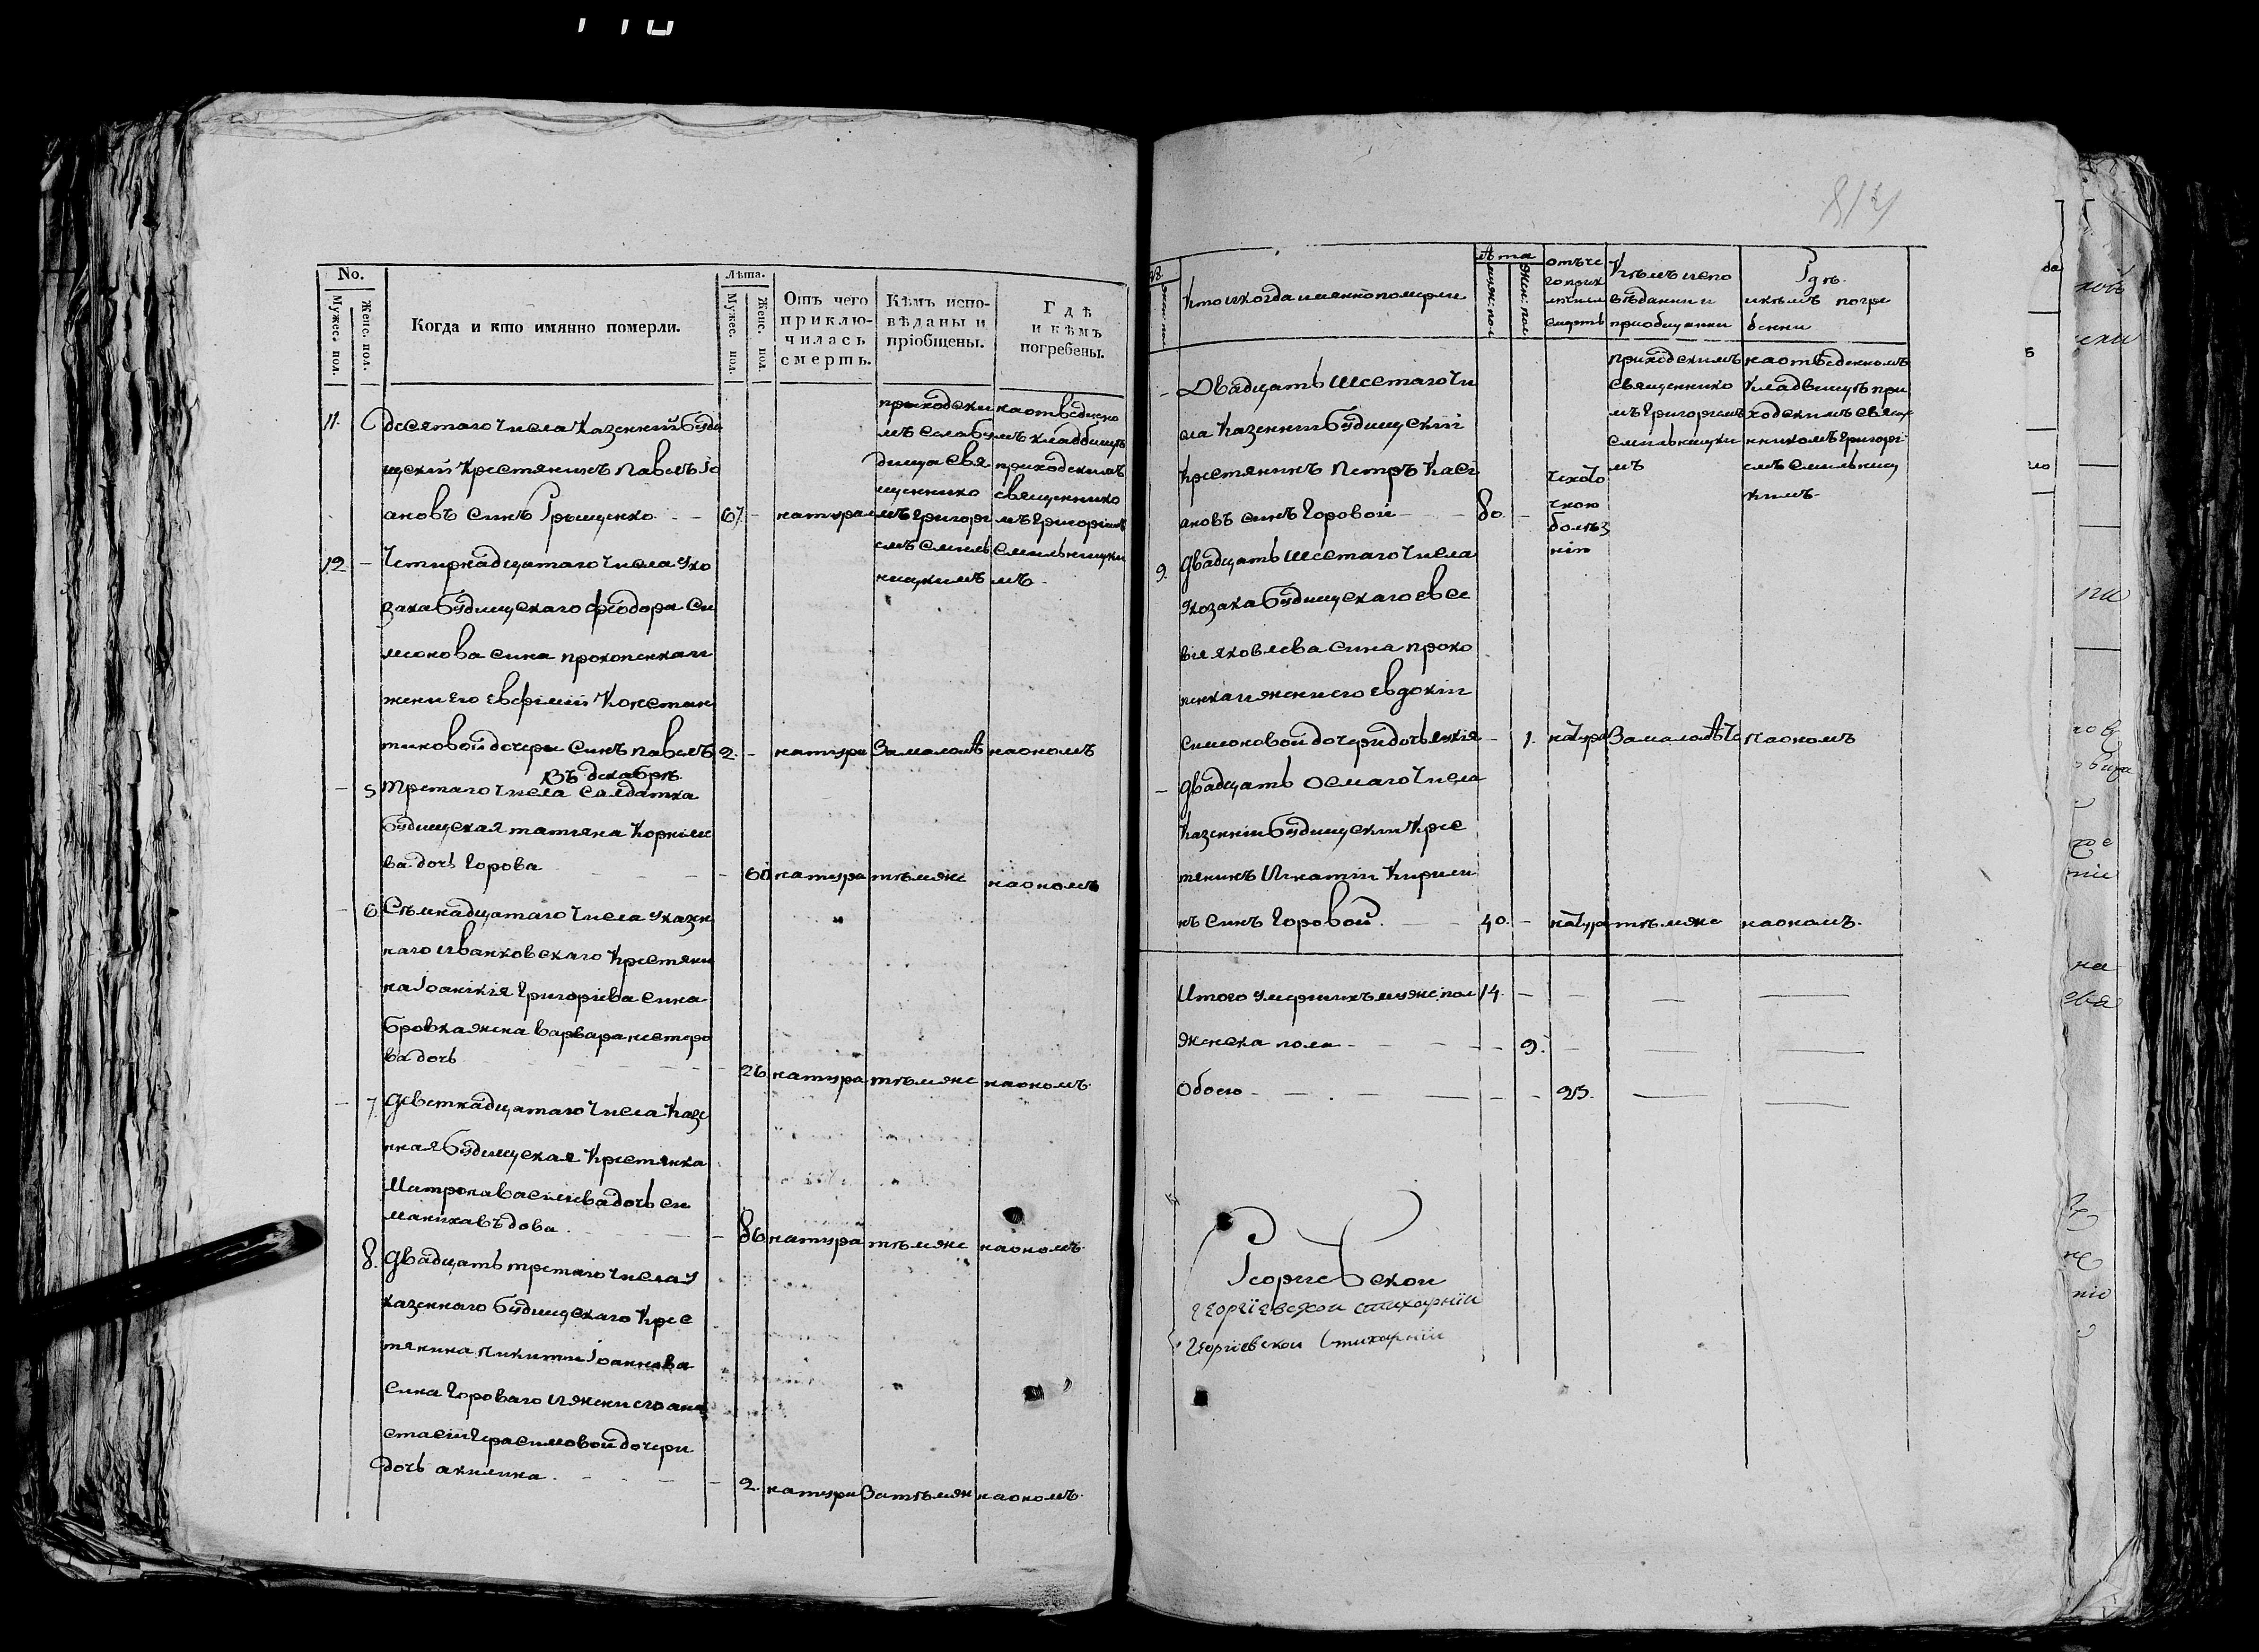 No.
Мужес. пол.
Женс. пол.
Когда и кто имянно померли.
Лѣта.
Мужес. пол.
Женс. пол.
Отъ чего
приклю-
чилась
смерть.
Кѣмъ испо-
вѣданы и
пріобщены.
Гдѣ
и кѣмъ
погребены.
11.
десятаго числа казенній буди
щскій крестянинъ павелъ Іо
ановъ синъ Грищенко — 67 — натурал
приходски
мъ
дища свя
щеннико
мъ григорі
емъ Смиль
ницкимъ
на отведено
мъ кладбищѣ
приходскимъ
священнико
мъ григоріемъ
Смильницки
мъ.
12 — Четирнадцатаго числа у ко
зака будищскаго феодора Си
монова сина прокопенка и
жени его евфиміи Констан
тиновой дочери синъ павелъ 2. — натура За малолѣ на ономъ
Въ декабрѣ
— 5 третаго числа салдатка
будищская татяна корнілие
ва дочь горова — 60 натура тѣмже на ономъ
— 6 Семнадцатаго числа у казен
наго иванковскаго крестяни
на Іоанікія григоріева сина
бровка жена варвара нестеро
ва дочь — 26 натура тѣмже на ономъ.
— 7. Деветнадцатаго числа казе
нная будищская крестянка
Матрона василиева дочь си
маниха вѣдова. — 86 натура тѣмже на ономъ.
8. Двадцать третаго числа у
казенного будищскаго крес
тянина никити Іоаннова
сина горового и жени его ана
стасіи герасимовой дочери
дочь акилина. — 2. натура За тѣмже на ономъ.
812
Кто и когда имянно померли
лѣта
мужс: пол
женс: пол
отъ че
го прик
лючила
смерть
Кѣмъ испо
вѣданни и
приобщенни
Гдѣ
и кѣмъ погре
бенни
— Двадцать шестаго чи
сла казенній будищскій
крестянинъ петръ касі
ановъ синъ горовой — 80. —
чхото
чною
болѣз
нію
приходскимъ
священнико
мъ григоріемъ
Смильницки
мъ
на отведенномъ
кладбищѣ при
ходскимъ свяще
нникомъ григорі
емъ Смильниц
кимъ.
9. Двадцать шестаго числа
у козака будищскаго евсе
вія яковлева сина проко
пенка и жени его евдокіи
симоновой дочери дочь — 1. натура За малолѣтс на ономъ
— Двадцать осмаго числа
казенній будищскій крес
тянинъ игнатій кирили
нъ синъ горовой. — 40. — натура тѣмже на ономъ.
Итого умершихъ мужс: пол 14. — — — —
женска пола — — — 9. — — —
Обоего — — — — 23. — —
Георгиевскои
георгіевскои стихарніи
георгіевскои стихарніи